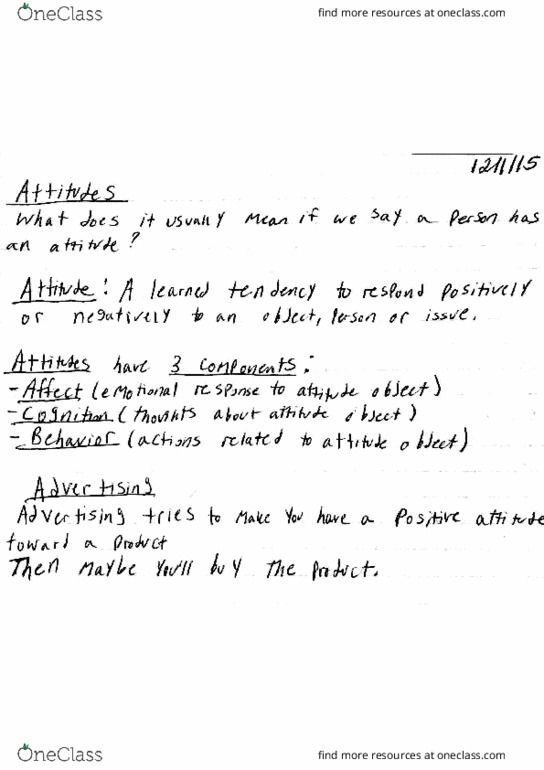 OneClass
find more resources at oneclass.com
12/1/15
Attitudes
What does it usually mean if we say a person has
an attitude?
Attitude: A learned tendency to respond positively
or negatively to an object, person or issue.
Attitudes have 3 components:
- Affect (emotional response to attitude object)
- Cognition (thoughts about attitude object)
- Behavior (actions related to attitude object)
Advertising
Advertising tries to make you have a positive attitude
toward a product
Then maybe you'll buy the product.
OneClass
find more resources at oneclass.com